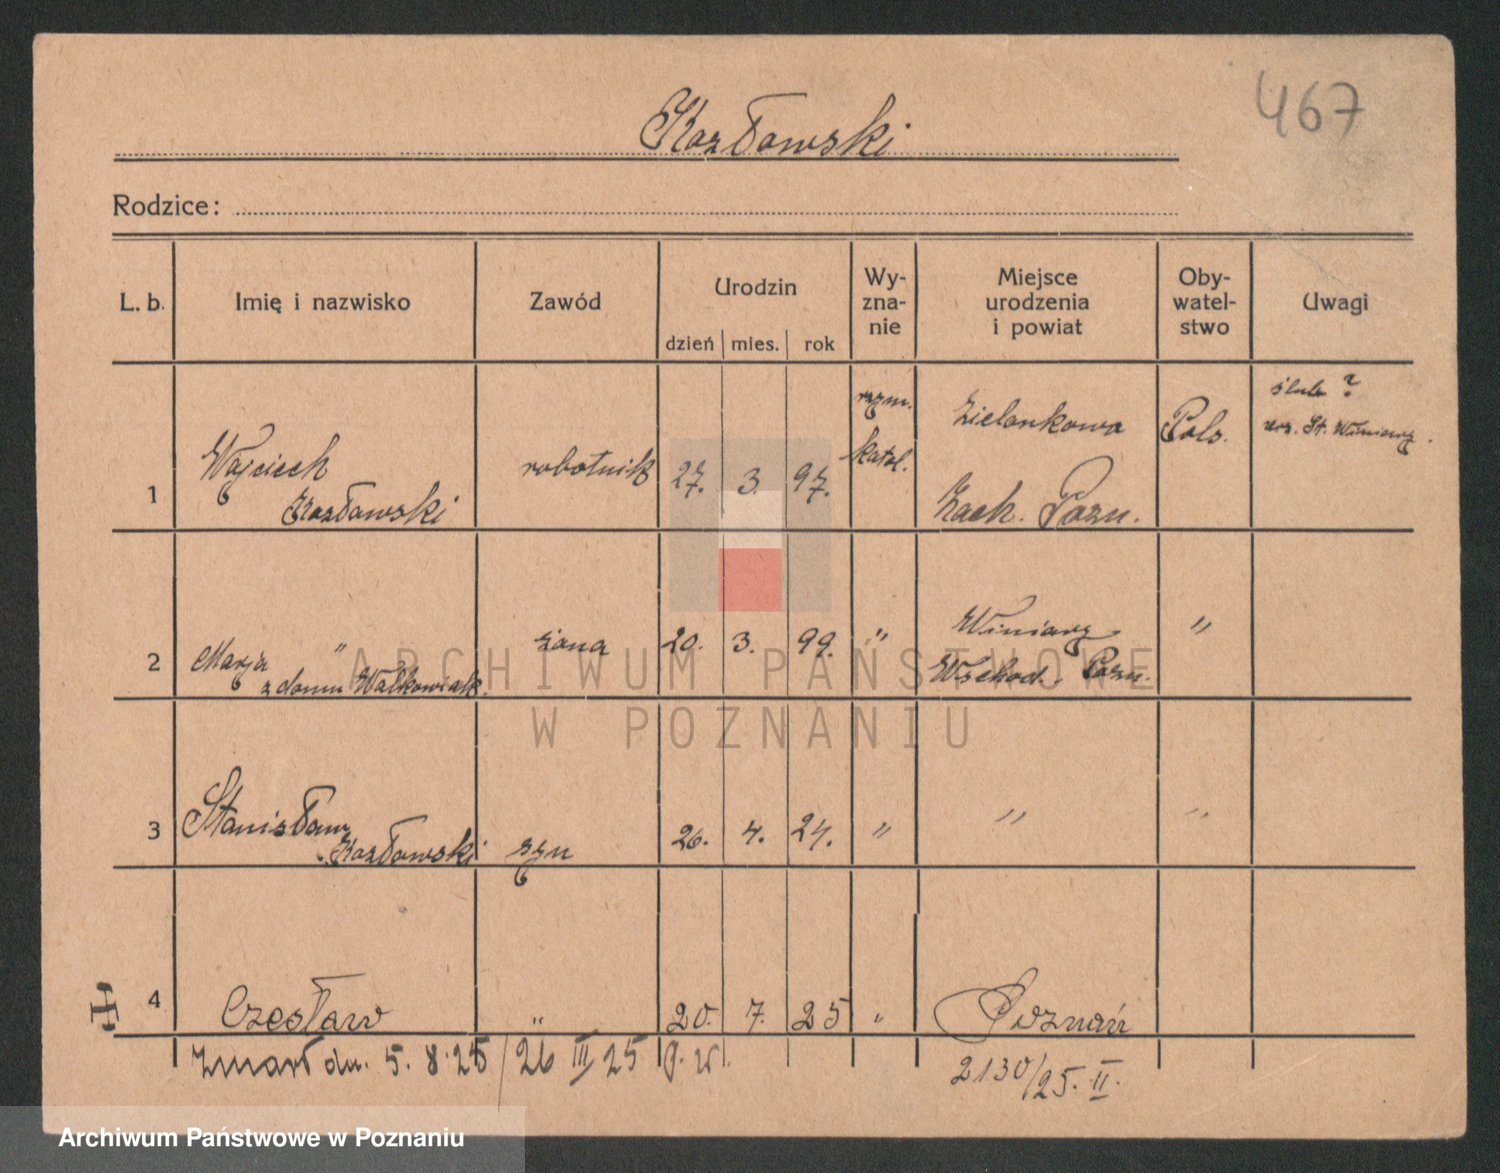 467
Kozłowski
Rodzice:
L. b. Imię i nazwisko Zawód Urodzin dzień mies. rok Wy-zna-nie Miejsce urodzenia i powiat Oby-watel-stwo Uwagi
1 Wojciech Kozłowski robotnik 27. 3. 97. rzym. katol. Zielonkowa Zach. Pozn. Pols. ślub ? urz. St. Winiary.
2 Marja " z domu Walkowiak. żona 20. 3. 99. " Winiary Wschod. Pozn. "
3 Stanisław Kozłowski syn 26. 4. 24. " " "
4 Czesław " 20. 7. 25 " Poznań
zmarł dn. 5. 8. 25 / 26 III 25
2130/25. II.
ARCHIWUM PAŃSTWOWE
W POZNANIU
Archiwum Państwowe w Poznaniu